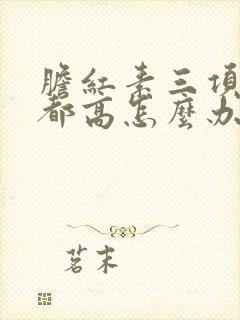 膽紅素三項
都高怎麼办
茗末